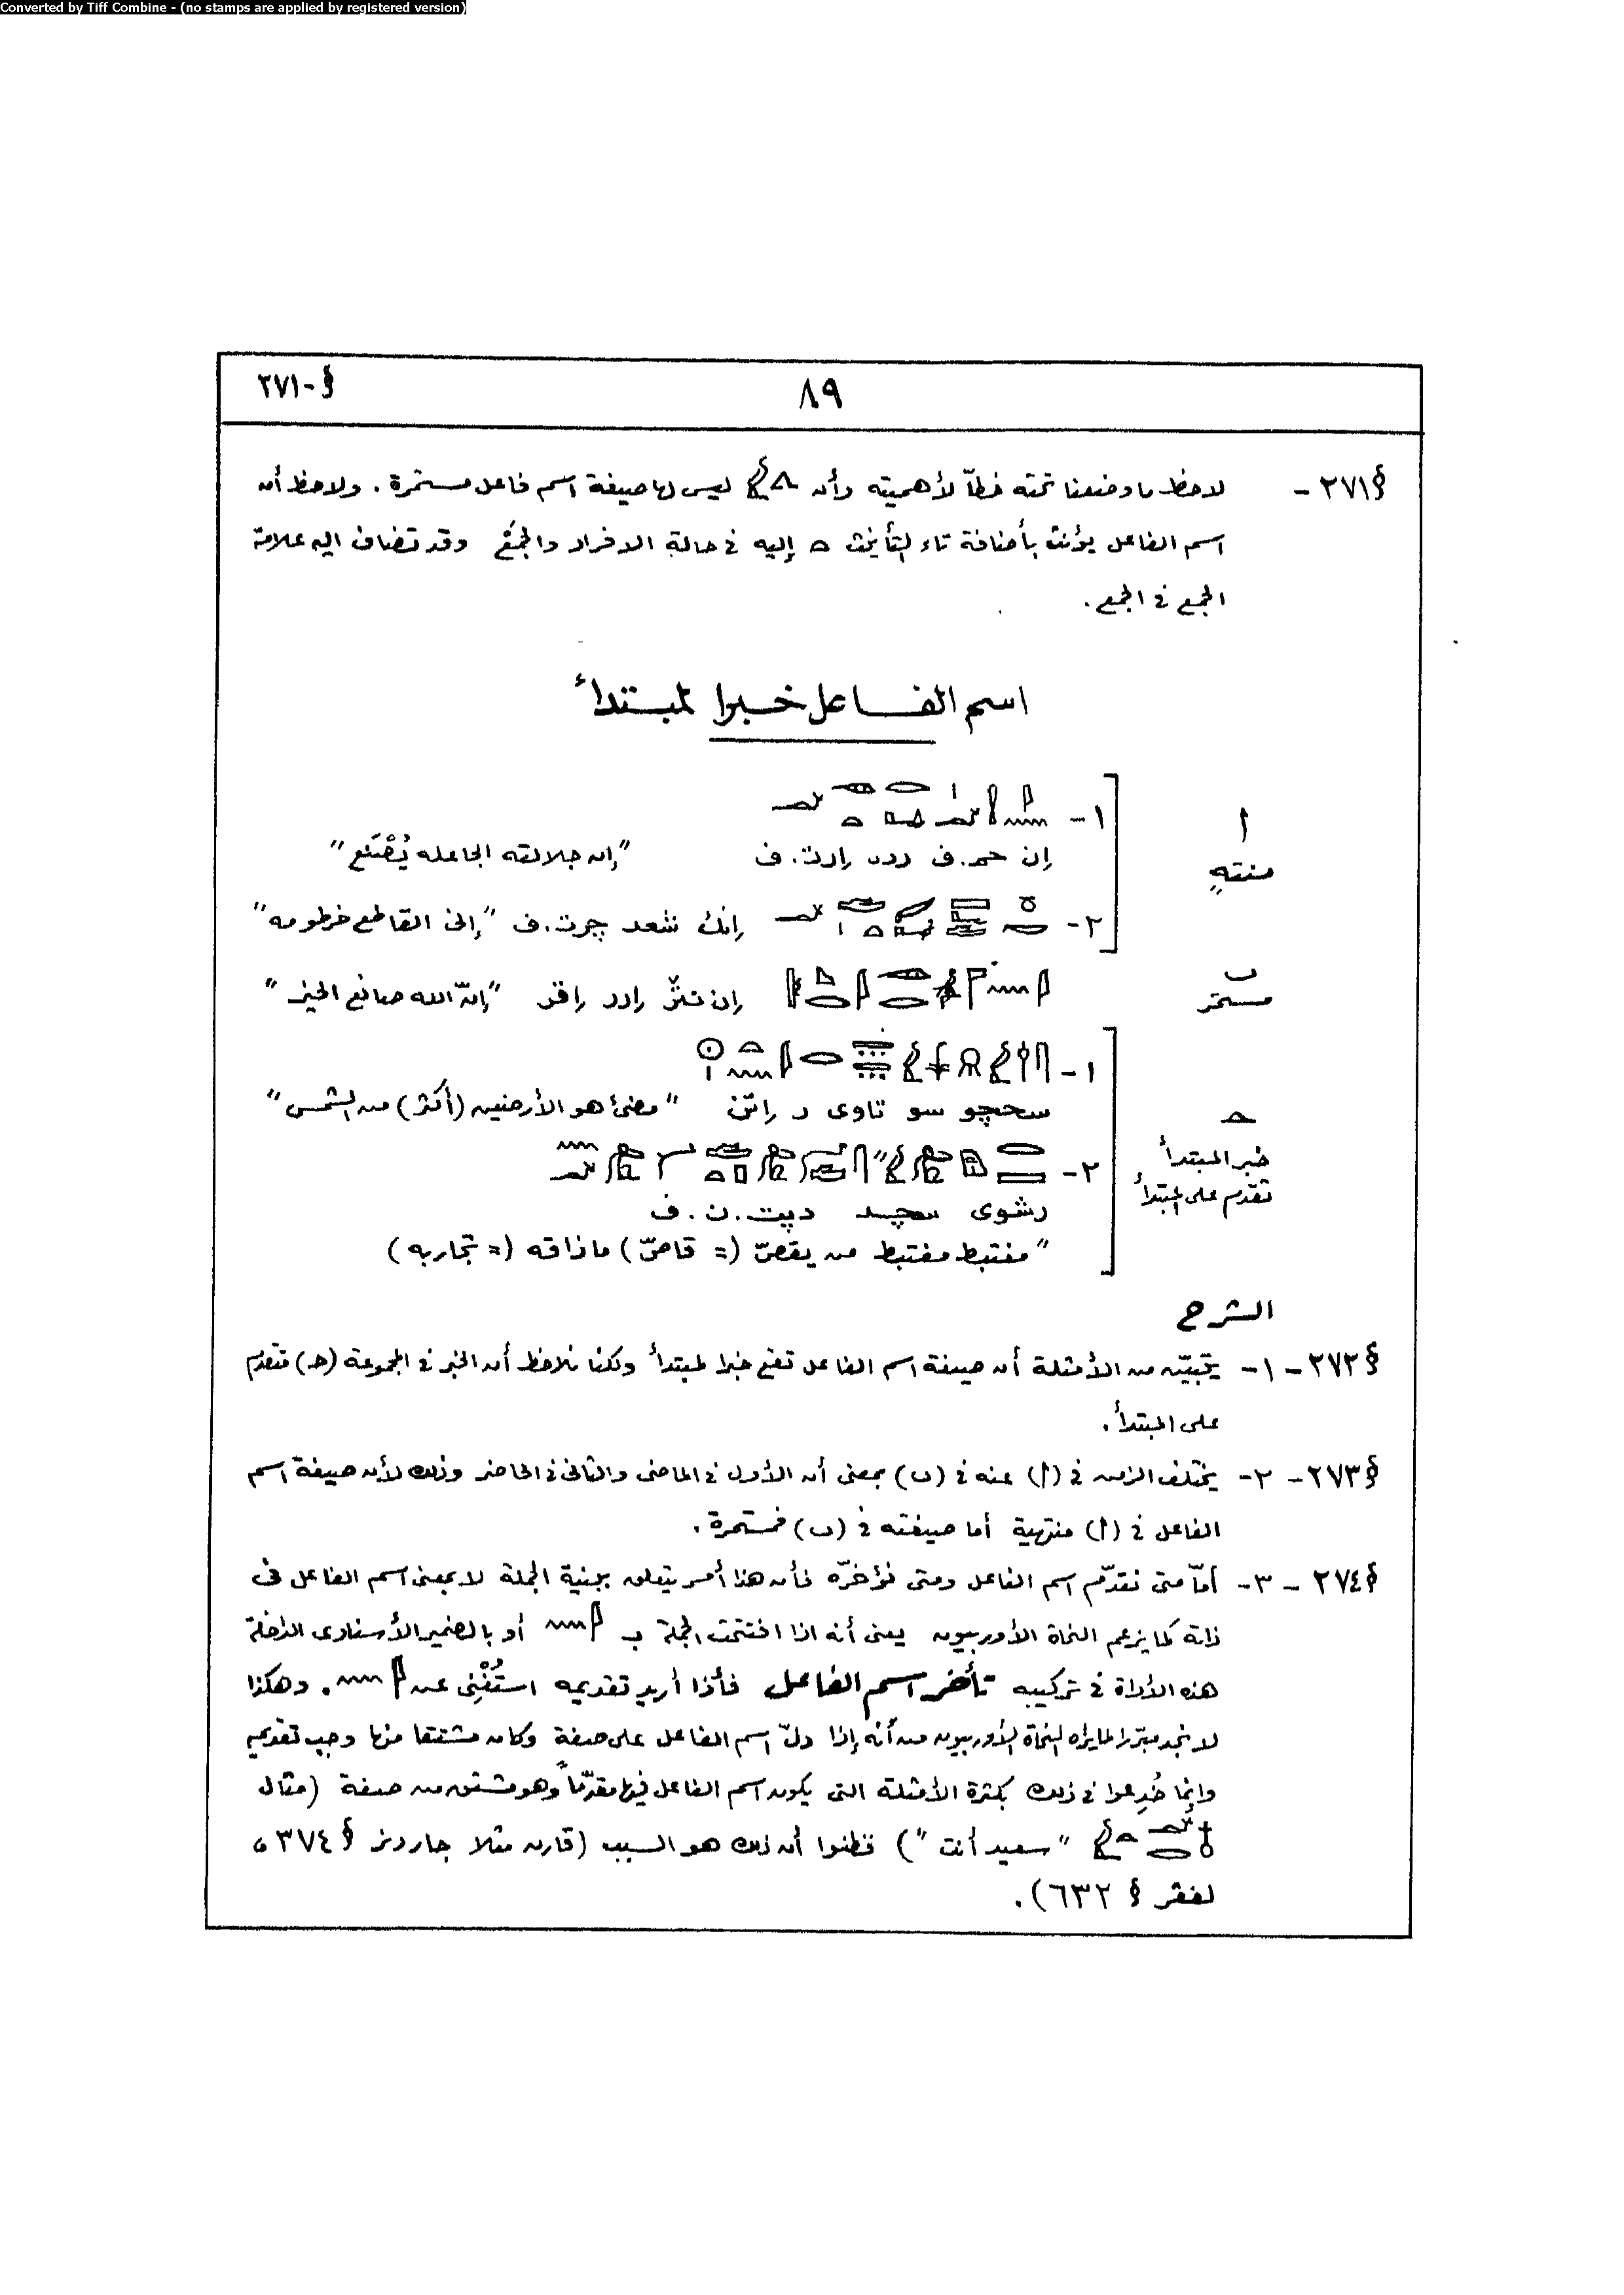 Converted by Tiff Combine - (no stamps are applied by registered version)
§-٢٧١
٨٩
§٢٧١- لاحظ ما وضعنا تحته خطاً لأهميته وأن ليس لها صيغة اسم فاعل مستمرة. ولاحظ أن
اسم الفاعل يؤنث بأضافة تاء التأنيث إليه فى حالة الافراد والجمع وقد تضاف اليه علامة
الجمع فى الجمع.
اسم الفاعل خبرا لمبتدأ
أ
منتهٍ
١-
إن حم.ف ردد "إن جلالته الجاعله يُصْنَع"
٢- "إنى القاطع خرطومه"
ب
مستمر
"إنّ الله صانع الخير"
حـ
خبر المبتدأ
تقدم على المبتدأ
١-
سحچو سو تاوى ر "مضئ هو الأرضين (أكثر) من الشمس"
٢-
رشوى سچد دپت.ن.ف
"مغتبط مغتبط من يقصّ (= قاصّ) ما ذاقه (= تجاربه)
الشرح
§٢٧٢-١- يتبيّن من الأمثلة أن صيغة اسم الفاعل تقع خبرا لمبتدأ ولكنا نلاحظ أن الخبر فى المجموعة (حـ) متقدم
على المبتدأ.
§٢٧٣-٢- يختلف الزمن فى (أ) عنه فى (ب) بمعنى أن الأول فى الماضى والثانى فى الحاضر وذلك لأن صيغة اسم
الفاعل فى (أ) منتهية أما صيغته فى (ب) فمستمرة.
§٢٧٤-٣- أمّا متى نقدّم اسم الفاعل ومتى نؤخرّه فأن هذا أمر يتعلق ببنية الجملة لا بمعنى اسم الفاعل فى
ذاته كما يزعم النحاة الأوربيون يعنى أنه اذا افتتحت الجملة بـ أو بالضمير الأسنادى الداخلة
هذه الأداة فى تركيبه تأخر اسم الفاعل فأذا أريد تقديمه استُغْنِى عن . وهكذا
لا نجد مبررا لما يراه النحاة الأوربيون من أنه إذا دلّ اسم الفاعل على صفة وكان مشتقا منها وجب تقديمه
وانما خُدِعوا فى ذلك بكثرة الأمثلة التى يكون اسم الفاعل فيها مقدّماً وهو مشتق من صفة (مثال
"سعيد أنت") فظنوا أن ذلك هو السبب (قارن مثلا جاردنر § ٣٧٤،
لففر § ٦٣٢).